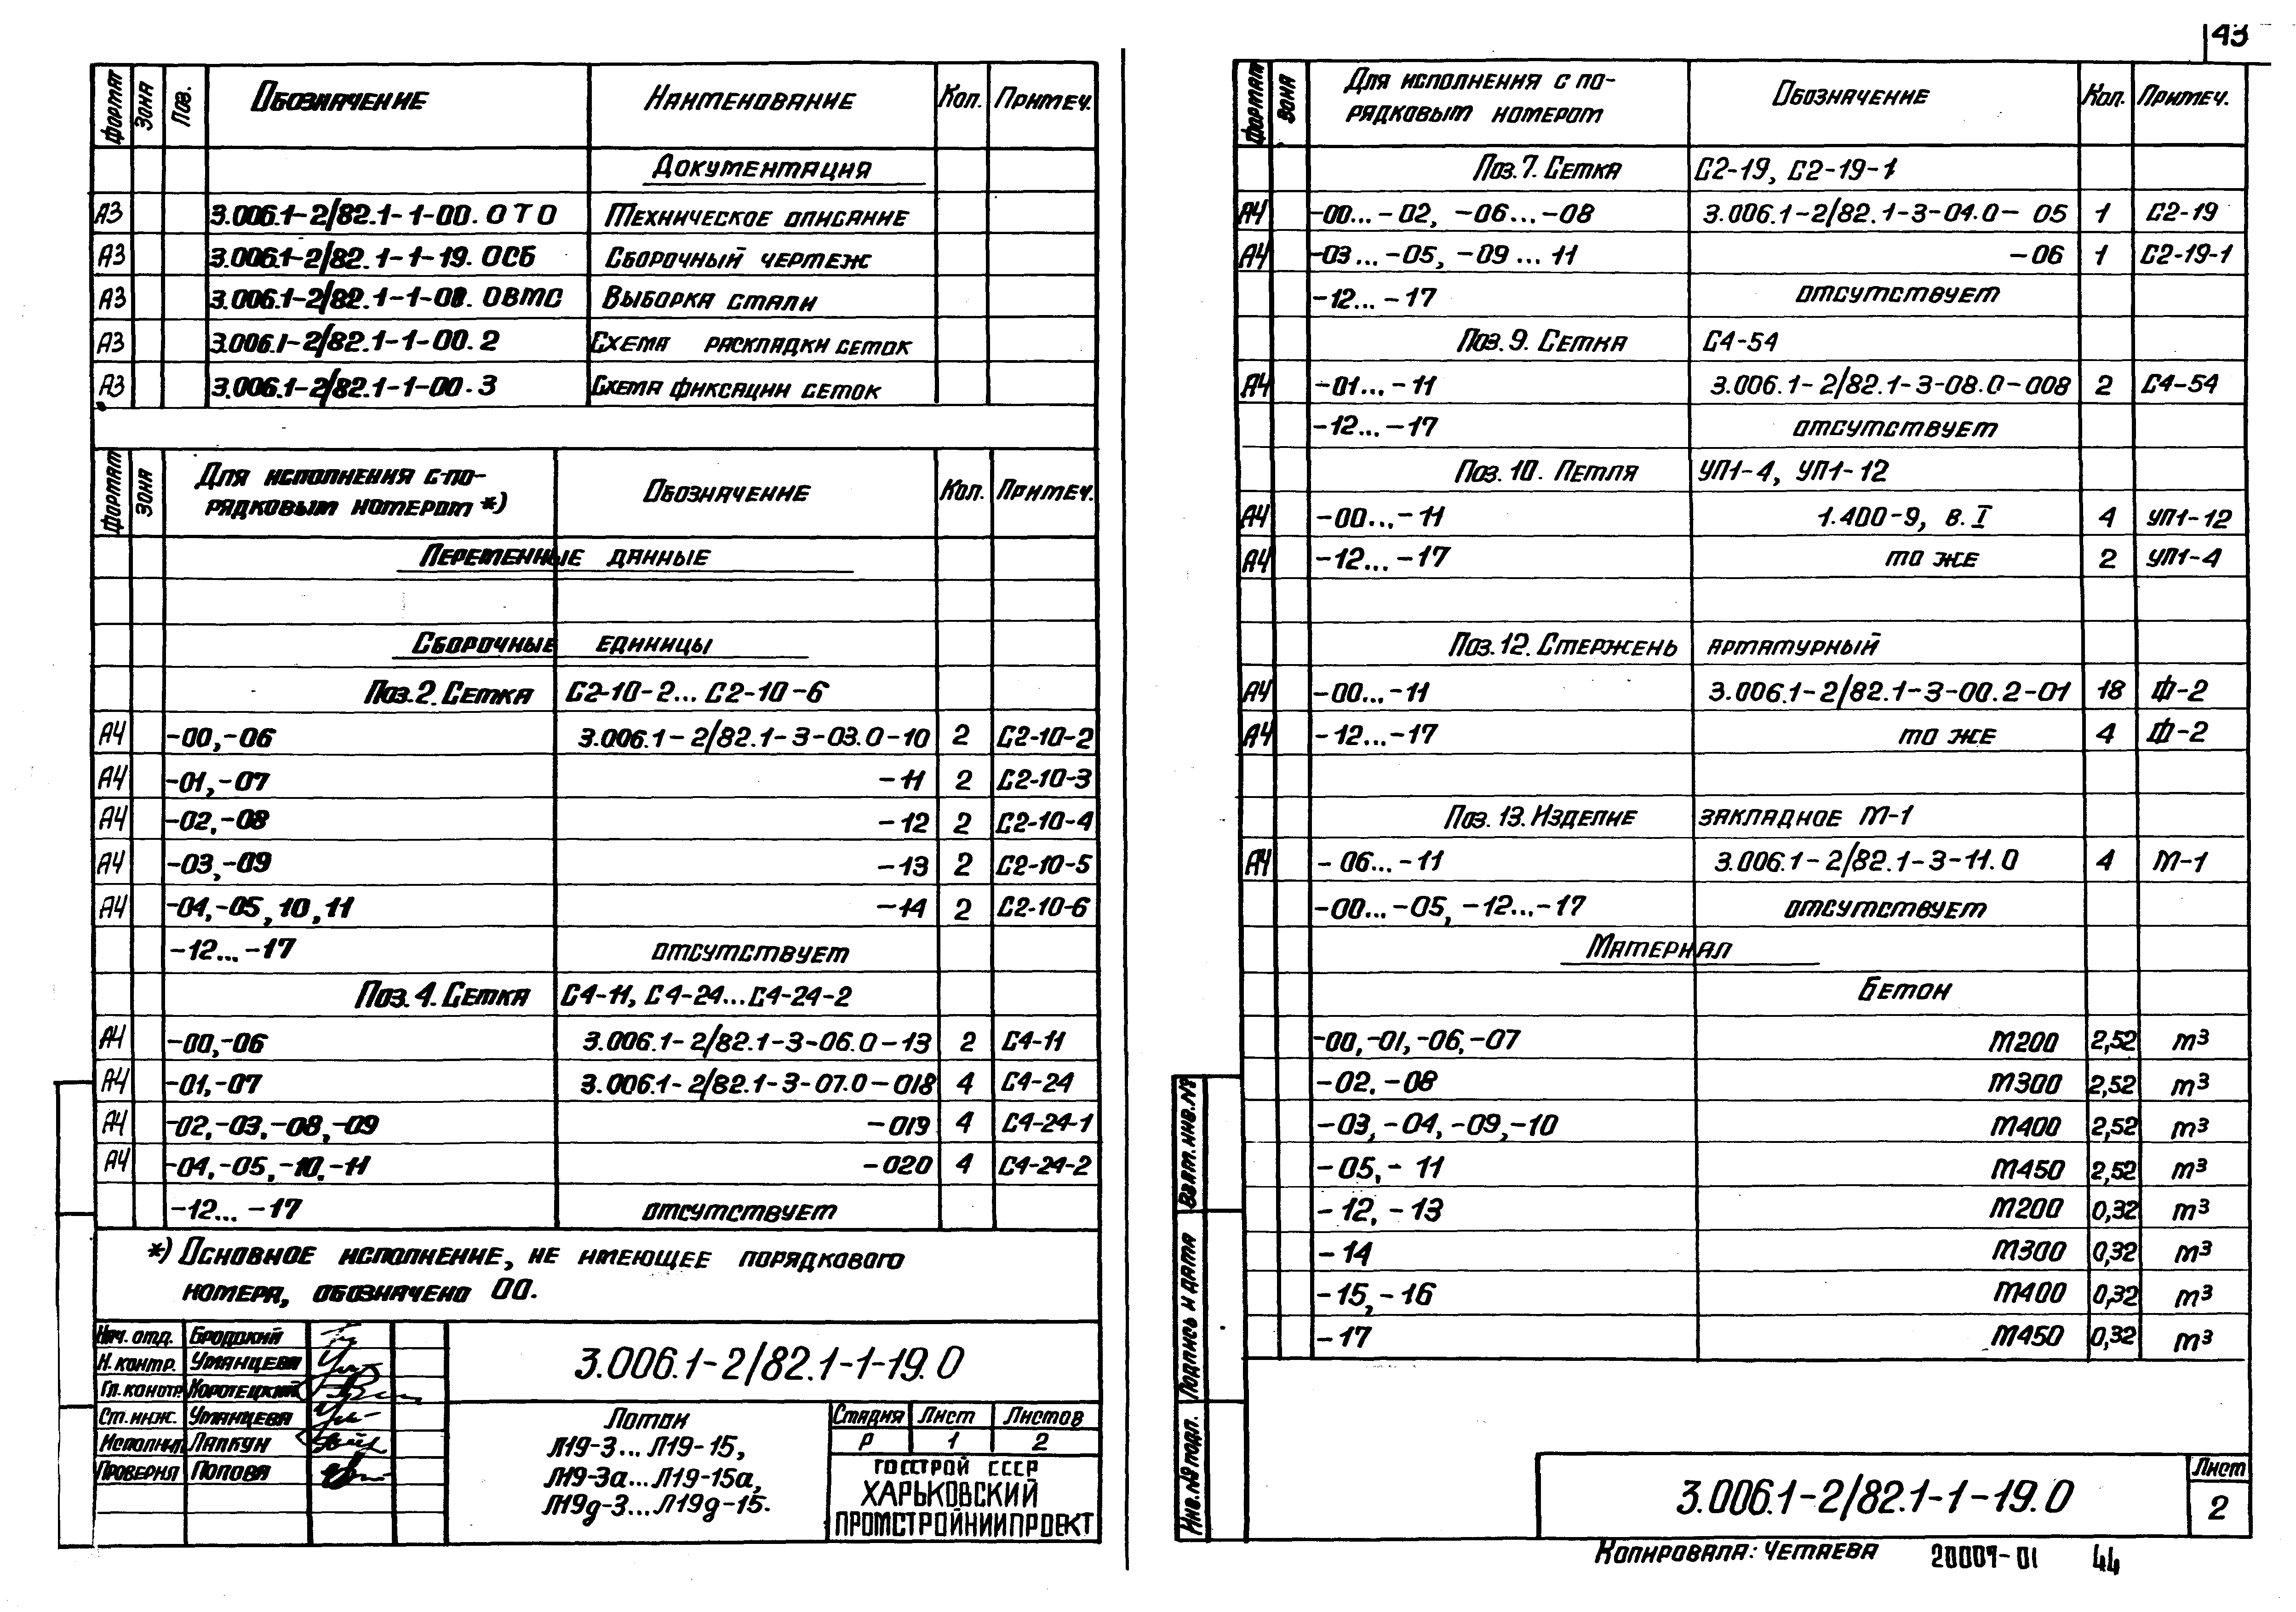 43
Формат Зона Поз. Обозначение Наименование Кол. Примеч.
Документация
А3 3.006.1-2/82.1-1-00.0ТО Техническое описание
А3 3.006.1-2/82.1-1-19.0СБ Сборочный чертеж
А3 3.006.1-2/82.1-1-00.0ВМС Выборка стали
А3 3.006.1-2/82.1-1-00.2 Схема раскладки сеток
А3 3.006.1-2/82.1-1-00.3 Схема фиксации сеток
Формат Зона Для исполнения с по- Обозначение Кол. Примеч.
рядковым номером *)
Переменные данные
Сборочные единицы
Поз. 2. Сетка С2-10-2... С2-10-6
А4 -00,-06 3.006.1-2/82.1-3-03.0-10 2 С2-10-2
А4 -01,-07 -11 2 С2-10-3
А4 -02,-08 -12 2 С2-10-4
А4 -03,-09 -13 2 С2-10-5
А4 -04,-05, 10, 11 -14 2 С2-10-6
-12... -17 отсутствует
Поз. 4. Сетка С4-11, С4-24...С4-24-2
А4 -00,-06 3.006.1-2/82.1-3-06.0-13 2 С4-11
А4 -01,-07 3.006.1-2/82.1-3-07.0-018 4 С4-24
А4 -02,-03,-08,-09 -019 4 С4-24-1
А4 -04,-05,-10,-11 -020 4 С4-24-2
-12... -17 отсутствует
*) Основное исполнение, не имеющее порядкового
номера, обозначено 00.
Нач. отд. Бродский
Н. контр. Уманцева
Гл. констр. Коротецкий
Ст. инж. Уманцева
Исполнил Лапкун
Проверил Попова
3.006.1-2/82.1-1-19.0
Лоток
Л19-3... Л19-15,
Л19-3а... Л19-15а,
Л19д-3... Л19д-15.
Стадия Лист Листов
Р 1 2
ГОССТРОЙ СССР
ХАРЬКОВСКИЙ
ПРОМСТРОЙНИИПРОЕКТ
Формат Зона Для исполнения с по- Обозначение Кол. Примеч.
рядковым номером
Поз. 7. Сетка С2-19, С2-19-1
А4 -00... -02, -06...-08 3.006.1-2/82.1-3-04.0-05 1 С2-19
А4 -03... -05, -09... 11 -06 1 С2-19-1
-12... -17 отсутствует
Поз. 9. Сетка С4-54
А4 -01... -11 3.006.1-2/82.1-3-08.0-008 2 С4-54
-12... -17 отсутствует
Поз. 10. Петля УП1-4, УП1-12
А4 -00... -11 1.400-9, в. I 4 УП1-12
А4 -12... -17 то же 2 УП1-4
Поз. 12. Стержень арматурный
А4 -00... -11 3.006.1-2/82.1-3-00.2-01 18 Ф-2
А4 -12...-17 то же 4 Ф-2
Поз. 13. Изделие закладное М-1
А4 -06... -11 3.006.1-2/82.1-3-11.0 4 М-1
-00... -05, -12...-17 отсутствует
Материал
Бетон
-00,-01,-06,-07 М200 2,52 м³
-02,-08 М300 2,52 м³
-03,-04,-09,-10 М400 2,52 м³
-05,- 11 М450 2,52 м³
-12, -13 М200 0,32 м³
-14 М300 0,32 м³
-15, -16 М400 0,32 м³
-17 М450 0,32 м³
Взам. инв. №
Подпись и дата
Инв. № подл.
3.006.1-2/82.1-1-19.0
Лист
2
Копировала: Четаева 20009-01 44